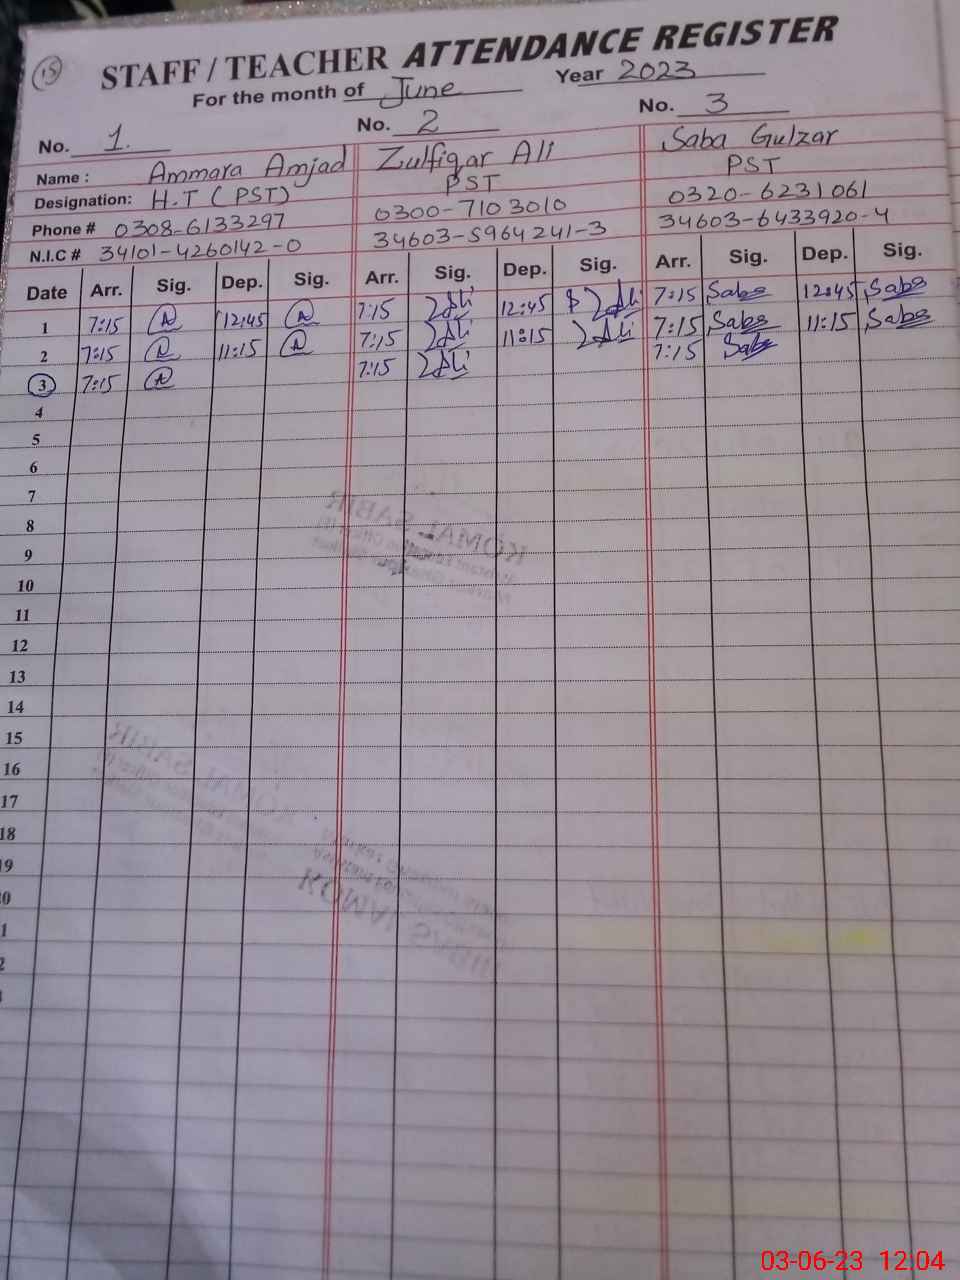 15
STAFF / TEACHER ATTENDANCE REGISTER
For the month of June Year 2023
No. 1. No. 2 No. 3
Name : Ammara Amjad Zulfiqar Ali Saba Gulzar
Designation: H.T (PST) PST PST
Phone # 0308-6133297 0300-7103010 0320-6231061
N.I.C # 34101-4260142-0 34603-5964241-3 34603-6433920-4
Date Arr. Sig. Dep. Sig. Arr. Sig. Dep. Sig. Arr. Sig. Dep. Sig.
1 7:15 12:45 7:15 12:45 7:15 Saba 12:45 Saba
2 7:15 11:15 7:15 11:15 7:15 Saba 11:15 Saba
3 7:15 7:15 7:15 Saba
4
5
6
7
8
9
10
11
12
13
14
15
16
17
18
19
KOMAL SABIR
KOMAL SABIR
KOMAL SABIR
03-06-23 12:04